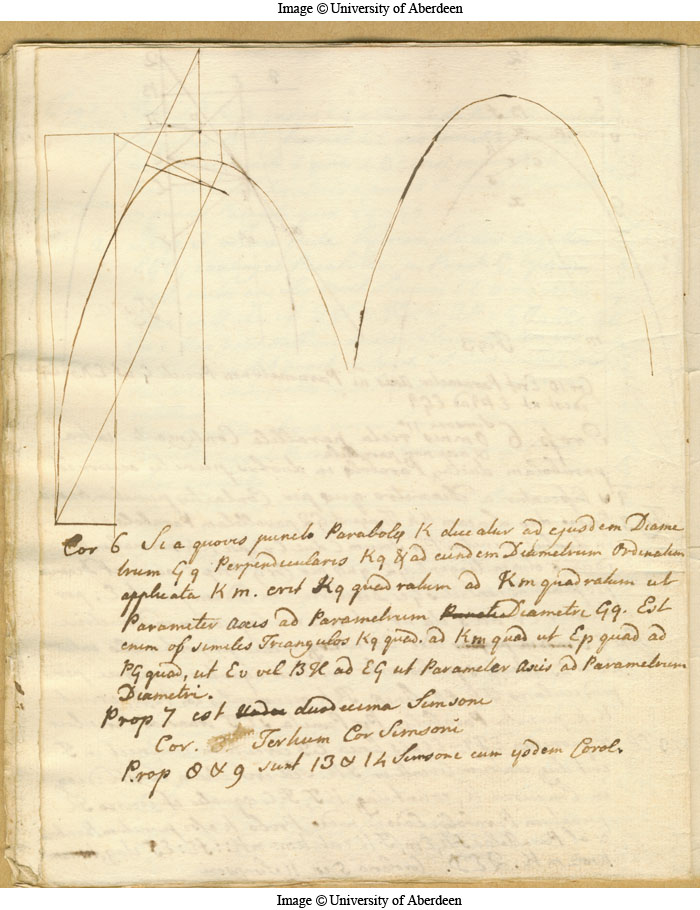 Image © University of Aberdeen
Cor 6 Si a quovis puncto Parabolę K ducatur ad ejusdem Diame
trum Gq Perpendicularis Kq & ad eundem Diametrum Ordinatim
applicata Km. erit Kq quadratum ad Km quadratum ut
Parameter axis ad Parametrum Diametri Gq. Est
enim ob similes Triangulos Kq quad. ad Km quad ut Ep quad ad
PG quad, ut Ev vel BH ad EG ut Parameter axis ad Parametrum
Diametri.
Prop 7 est duodecima Simsoni
Cor. Tertium Cor Simsoni
Prop 8 & 9 sunt 13 & 14 Simsoni cum ijsdem Corol.
Image © University of Aberdeen